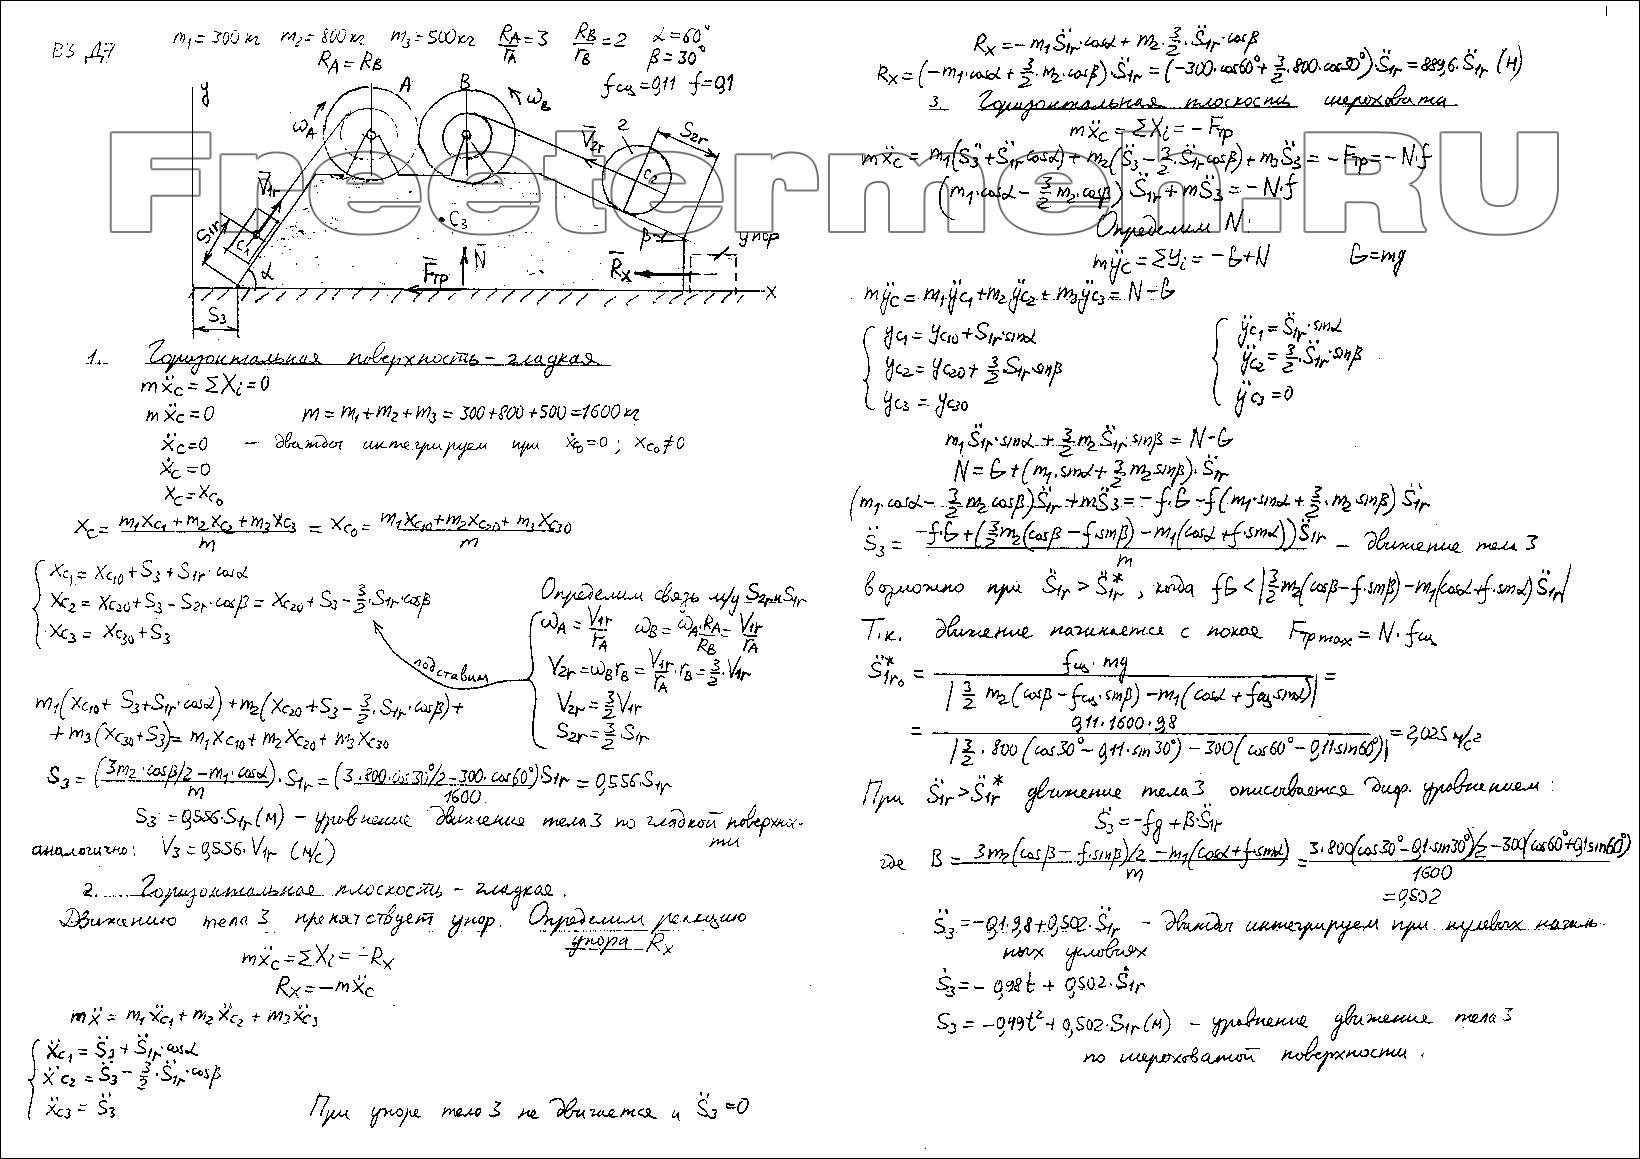 В3 Д7
m₁=300кг m₂=800кг m₃=500кг R_A/r_A=3 R_B/r_B=2 α=60°
R_A=R_B β=30°
f_сц=0,11 f=0,1
y A B ω_A ω_B V̄_2r 2 S_2r C₂
V̄_1r S_1r C₁ α C₃ N̄ F̄_тр R̄_x β упор x
S₃
1. Горизонтальная поверхность – гладкая
mẍ_C = ΣX_i = 0
mẍ_C = 0 m = m₁+m₂+m₃ = 300+800+500 = 1600 кг
ẍ_C=0 – дважды интегрируем при ẋ₀=0; x_C₀≠0
ẋ_C=0
x_C=x_C₀
x_C = (m₁x_C1+m₂x_C2+m₃x_C3)/m = x_C₀ = (m₁x_C10+m₂x_C20+m₃x_C30)/m
x_C1 = x_C10+S₃+S_1r·cosα
x_C2 = x_C20+S₃−S_2r·cosβ = x_C20+S₃−3/2·S_1r·cosβ
x_C3 = x_C30+S₃
Определим связь м/у S_2r и S_1r
ω_A = V_1r/r_A ω_B = ω_A·R_A/R_B = V_1r/r_A
V_2r = ω_B r_B = V_1r/r_A·r_B = 3/2·V_1r
V_2r = 3/2 V_1r
S_2r = 3/2·S_1r
подставим
m₁(x_C10+S₃+S_1r·cosα)+m₂(x_C20+S₃−3/2·S_1r·cosβ)+
+m₃(x_C30+S₃)=m₁x_C10+m₂x_C20+m₃x_C30
S₃ = (3m₂·cosβ/2−m₁·cosα)/m·S_1r = (3·800·cos30°/2−300·cos60°)/1600 S_1r = 0,556·S_1r
S₃=0,556·S_1r(м) – уравнение движение тела 3 по гладкой поверхнос-
ти
аналогично: V₃=0,556·V_1r (м/с)
2. Горизонтальная плоскость – гладкая.
Движению тела 3 препятствует упор. Определим реакцию
упора R_x
mẍ_C = ΣX_i = −R_x
R_x = −mẍ_C
mẍ = m₁ẍ_C1+m₂ẍ_C2+m₃ẍ_C3
ẍ_C1 = S̈₃+S̈_1r·cosα
ẍ_C2 = S̈₃−3/2·S̈_1r·cosβ
ẍ_C3 = S̈₃
При упоре тело 3 не двигается и S̈₃=0
R_x = −m₁S̈_1r·cosα+m₂·3/2·S̈_1r·cosβ
R_x = (−m₁·cosα+3/2·m₂·cosβ)·S̈_1r = (−300·cos60°+3/2·800·cos30°)·S̈_1r = 889,6·S̈_1r (Н)
3. Горизонтальная плоскость шероховата
mẍ_C = ΣX_i = −F_тр
mẍ_C = m₁(S̈₃+S̈_1r cosα)+m₂(S̈₃−3/2·S̈_1r cosβ)+m₃S̈₃ = −F_тр = −N·f
(m₁·cosα−3/2m₂·cosβ) S̈_1r+mS̈₃ = −N·f
Определим N:
mÿ_C = ΣY_i = −G+N G=mg
mÿ_C = m₁ÿ_C1+m₂ÿ_C2+m₃ÿ_C3 = N−G
y_C1 = y_C10+S_1r·sinα ÿ_C1 = S̈_1r·sinα
y_C2 = y_C20+3/2·S_1r·sinβ ÿ_C2 = 3/2·S̈_1r·sinβ
y_C3 = y_C30 ÿ_C3 = 0
m₁S̈_1r·sinα+3/2m₂S̈_1r·sinβ = N−G
N = G+(m₁·sinα+3/2m₂sinβ)·S̈_1r
(m₁cosα−3/2m₂cosβ)S̈_1r+mS̈₃ = −f·G−f(m₁·sinα+3/2·m₂sinβ) S̈_1r
S̈₃ = (−f·G+(3/2m₂(cosβ−f·sinβ)−m₁(cosα+f·sinα))S̈_1r)/m – движение тела 3
возможно при S̈_1r>S̈_1r*, когда fG<|3/2m₂(cosβ−f·sinβ)−m₁(cosα+f·sinα)S̈_1r|
Т.к. движение начинается с покоя F_тр max = N·f_сц
S̈_1r₀* = f_сц·mg/|3/2 m₂(cosβ−f_сц·sinβ)−m₁(cosα+f_сц sinα)| =
= 0,11·1600·9,8/|3/2·800(cos30°−0,11·sin30°)−300(cos60°−0,11sin60°)| = 2,025 м/с²
При S̈_1r>S̈_1r* движение тела 3 описывается диф. уравнением:
S̈₃ = −fg+B·S̈_1r
где B = (3m₂(cosβ−f·sinβ)/2−m₁(cosα+f·sinα))/m = (3·800(cos30°−0,1·sin30°)/2−300(cos60°+0,1sin60°))/1600
=0,502
S̈₃ = −0,1·9,8+0,502·S̈_1r – дважды интегрируем при нулевых началь-
ных условиях
Ṡ₃ = −0,98t+0,502·Ṡ_1r
S₃ = −0,49t²+0,502·S_1r(м) – уравнение движение тела 3
по шероховатой поверхности.
Freetermeh.RU